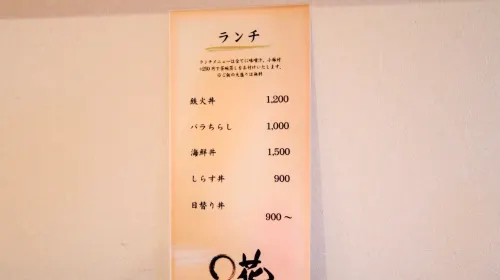 ランチ
ランチメニューは全てに味噌汁、小鉢付
+250円で茶碗蒸しをお付けいたします。
※ご飯の大盛りは無料
鉄火丼 1,200
バラちらし 1,000
海鮮丼 1,500
しらす丼 900
日替り丼 900～
花